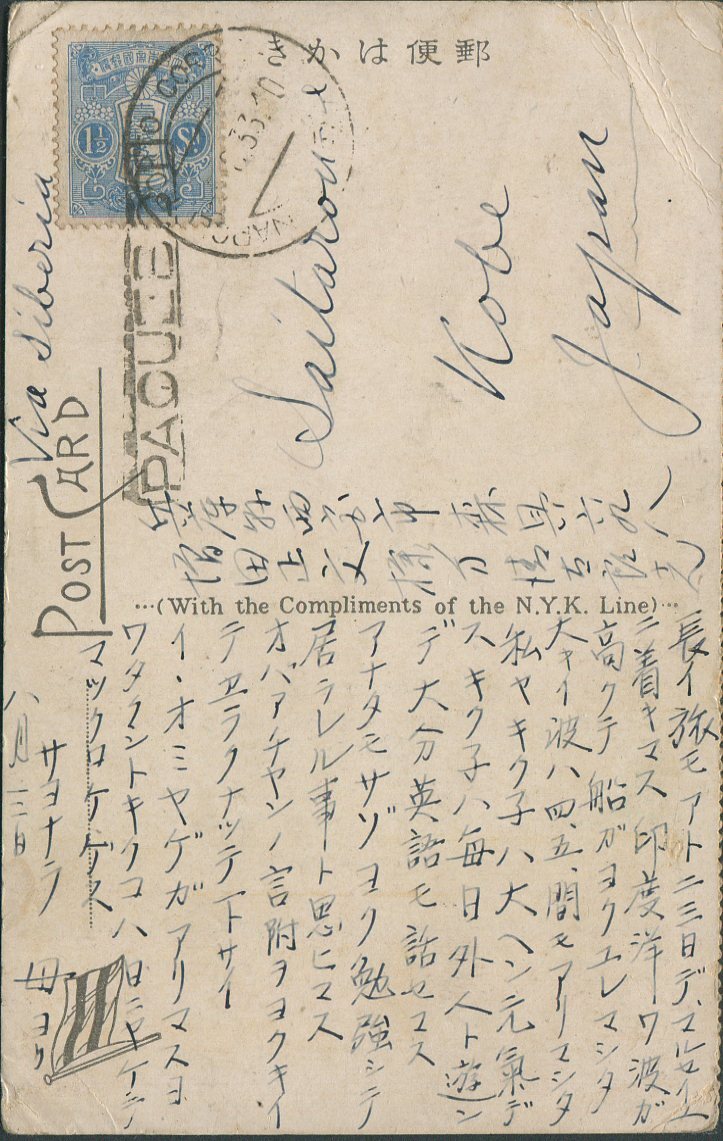 郵便はかき
1½ Sn 1½
PAQUEBOT
POST CARD
Via Siberia
Saitarou
Kobe
Japan
兵庫県西宮市
増田正文様
…(With the Compliments of the N.Y.K. Line)…
長イ旅モアト二三日デマルセイユ
ニ着キマス 印度洋ワ波ガ
高クテ 船ガヨクユレマシタ
大キイ波ハ四、五、間モアリマシタ
私ヤキク子ハ大ヘン元氣デ
スキク子ハ毎日外人ト遊ン
デ大分英語モ話セマス
アナタモサゾヨク勉強シテ
居ラレル事ト思ヒマス
オバアチヤンノ言附ヲヨクキイ
テヱラクナッテ下サイ
イ・オミヤゲガアリマスヨ
ワタクシトキクコハ日ニヤケテ
マックロケデス
サヨナラ
八月二日
母ヨリ